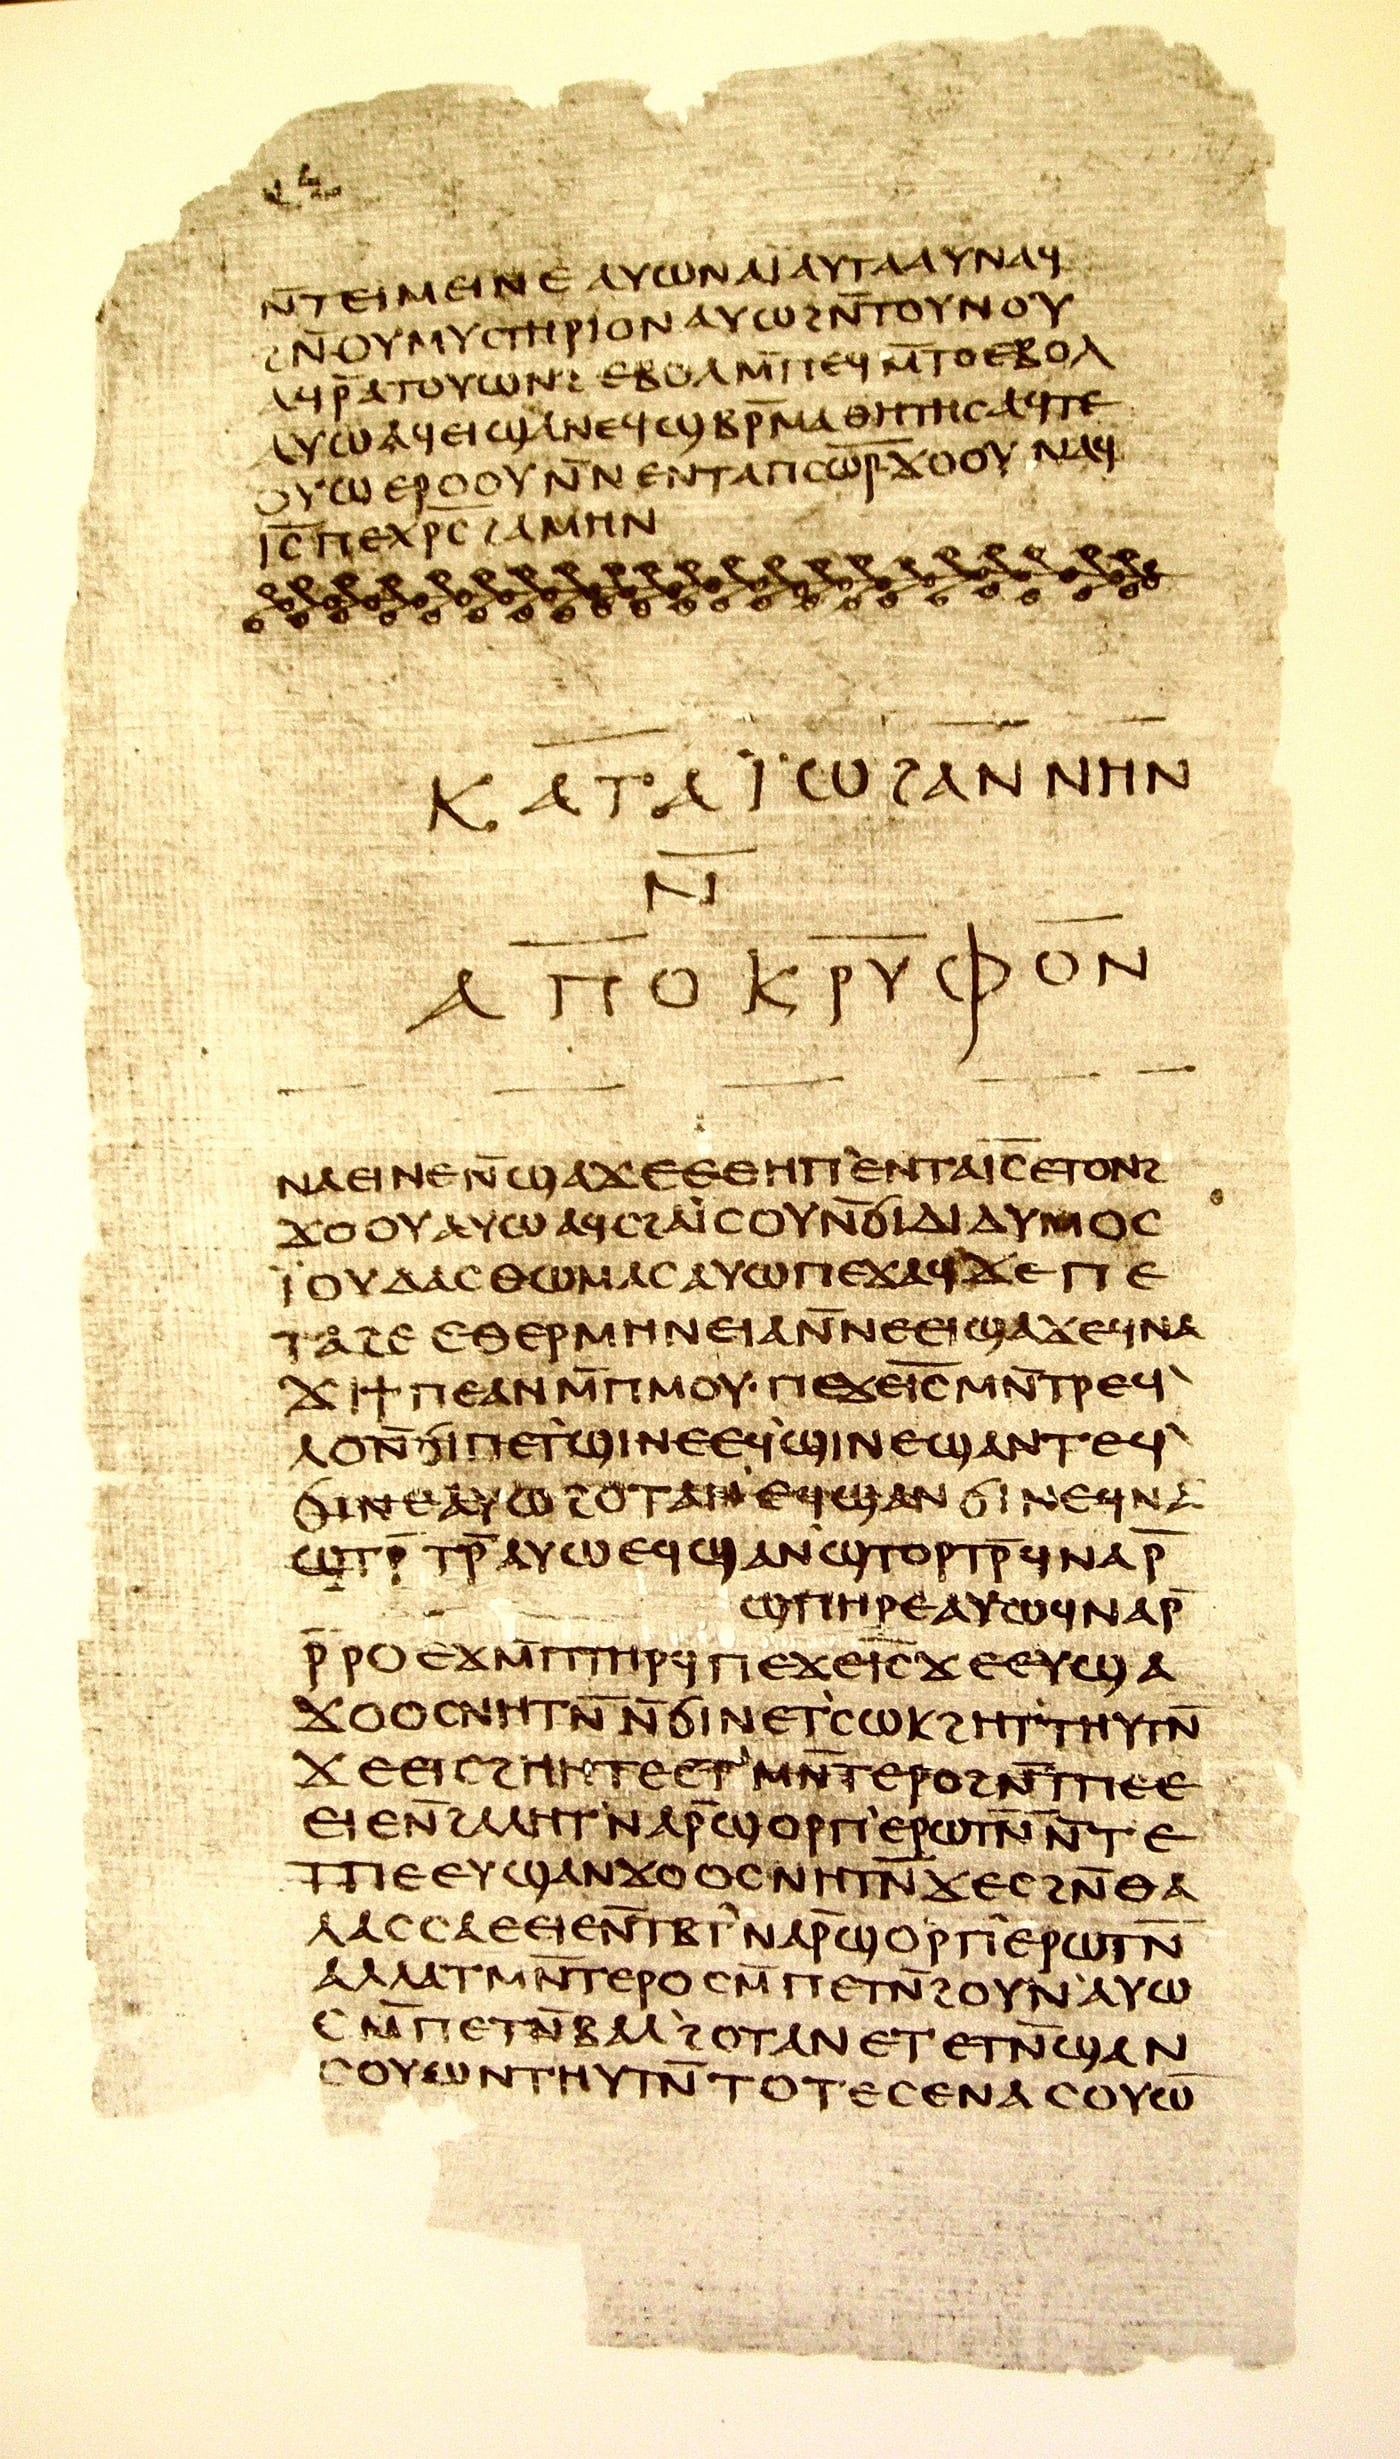 ⲛ̄ⲧⲉⲓⲙⲉⲓⲛⲉ ⲁⲩⲱⲛⲁⲓ̈ⲁⲩⲧⲁⲁⲩⲛⲁϥ
ϩⲛ̄ⲟⲩⲙⲩⲥⲧⲏⲣⲓⲟⲛⲁⲩⲱϩⲛ̄ⲧⲟⲩⲛⲟⲩ
ⲁϥⲣ̄ⲁⲧⲟⲩⲱⲛϩ ⲉⲃⲟⲗⲙ̄ⲡⲉϥⲙ̄ⲧⲟⲉⲃⲟⲗ
ⲁⲩⲱⲁϥⲉⲓϣⲁⲛⲉϥϣⲃⲣ̄ⲙⲁⲑⲏⲧⲏⲥⲁϥⲧⲉ
ⲟⲩⲱ ⲉⲣⲟⲟⲩⲛ̄ⲛⲉⲛⲧⲁⲡⲥⲱ̄ⲣ̄ϫⲟⲟⲩ ⲛⲁϥ
ⲓ̄ⲥ̄ⲡⲉⲭⲣ̄ⲥ̄ϩⲁⲙⲏⲛ
ⲕⲁⲧⲁ ⲓ̈ⲱϩⲁⲛⲛⲏⲛ
ⲛ̄
ⲁⲡⲟⲕⲣⲩⲫⲟⲛ
ⲛⲁⲉⲓⲛⲉⲛ̄ϣⲁϫⲉⲉⲑⲏⲡ`ⲉⲛⲧⲁⲓ̄ⲥ̄ⲉⲧⲟⲛϩ
ϫⲟⲟⲩⲁⲩⲱⲁϥⲥϩⲁⲓ̈ⲥⲟⲩⲛ̄ϭⲓⲇⲓⲇⲩⲙⲟⲥ
ⲓ̈ⲟⲩⲇⲁⲥⲑⲱⲙⲁⲥⲁⲩⲱⲡⲉϫⲁϥϫⲉⲡⲉ
ⲧⲁϩⲉ ⲉⲑⲉⲣⲙⲏⲛⲉⲓⲁⲛ̄ⲛⲉⲉⲓϣⲁϫⲉϥⲛⲁ
ϫⲓϯⲡⲉⲁⲛⲙ̄ⲡⲙⲟⲩ·ⲡⲉϫⲉⲓ̄ⲥ̄ⲙⲛ̄ⲧⲣⲉϥ`
ⲗⲟⲛ̄ϭⲓⲡⲉⲧ`ϣⲓⲛⲉⲉϥ`ϣⲓⲛⲉϣⲁⲛⲧⲉϥ`
ϭⲓⲛⲉⲁⲩⲱϩⲟⲧⲁⲛ`ⲉϥϣⲁⲛϭⲓⲛⲉϥⲛⲁ
ϣⲧⲣ̄ⲧⲣ̄ⲁⲩⲱⲉϥϣⲁⲛ`ϣⲧⲟⲣⲧⲣ̄ϥⲛⲁⲣ̄
ϣⲡⲏⲣⲉⲁⲩⲱϥⲛⲁⲣ̄
ⲣ̄ⲣⲟⲉϫⲙ̄ⲡⲧⲏⲣϥⲡⲉϫⲉⲓ̄ⲥ̄ϫⲉⲉⲩϣⲁ
ϫⲟⲟⲥⲛⲏⲧⲛ̄ⲛ̄ϭⲓⲛⲉⲧ`ⲥⲱⲕϩⲏⲧ`ⲧⲏⲩⲧⲛ̄
ϫⲉⲉⲓⲥϩⲏⲏⲧⲉⲉⲧ`ⲙⲛ̄ⲧⲉⲣⲟϩⲛ̄ⲧⲡⲉⲉ
ⲉⲓⲉⲛ̄ϩⲁⲗⲏⲧ`ⲛⲁⲣ̄ϣⲟⲣⲡ`ⲉⲣⲱⲧⲛ̄ⲛ̄ⲧⲉ
ⲧⲡⲉⲉⲩϣⲁⲛϫⲟⲟⲥⲛⲏⲧⲛ̄ϫⲉⲥϩⲛ̄ⲑⲁ
ⲗⲁⲥⲥⲁⲉⲉⲓⲉⲛ̄ⲧⲃⲧ`ⲛⲁⲣ̄ϣⲟⲣⲡ`ⲉⲣⲱⲧⲛ̄
ⲁⲗⲗⲁⲧⲙⲛ̄ⲧⲉⲣⲟⲥⲙ̄ⲡⲉⲧⲛ̄ϩⲟⲩⲛ`ⲁⲩⲱ
ⲥⲙ̄ⲡⲉⲧⲛ̄ⲃⲁⲗ`ϩⲟⲧⲁⲛⲉⲧⲉⲧⲛ̄ϣⲁⲛ
ⲥⲟⲩⲱⲛⲧⲏⲩⲧⲛ̄ⲧⲟⲧⲉⲥⲉⲛⲁⲥⲟⲩⲱ̄